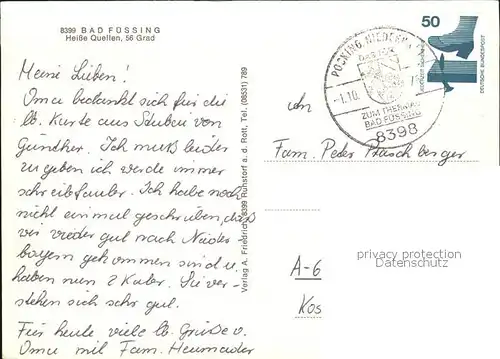 8399 BAD FÜSSING
Heiße Quellen, 56 Grad
Meine Lieben!
Oma bedankt sich für die
lb. Karte aus Stubai von
Günther. Ich muß leider
zugeben ich werde immer
schreibfauler. Ich habe noch
nicht einmal geschrieben, daß
wir wieder gut nach Nieder-
bayern gekommen sind u.
haben nun 2 Kater. Sie ver-
stehen sich sehr gut.
Für heute viele lb. Grüße v.
Oma mit Fam. Heumader
Verlag A. Friedrich, 8399 Ruhstorf a. d. Rott, Tel. (08531) 789
POCKING, NIEDERB
-1.10.
ZUM THERMAL
BAD FÜSSING
8398
50
DEUTSCHE BUNDESPOST
An
Fam. Peter
privacy protection
Datenschutz
A-6
Kos